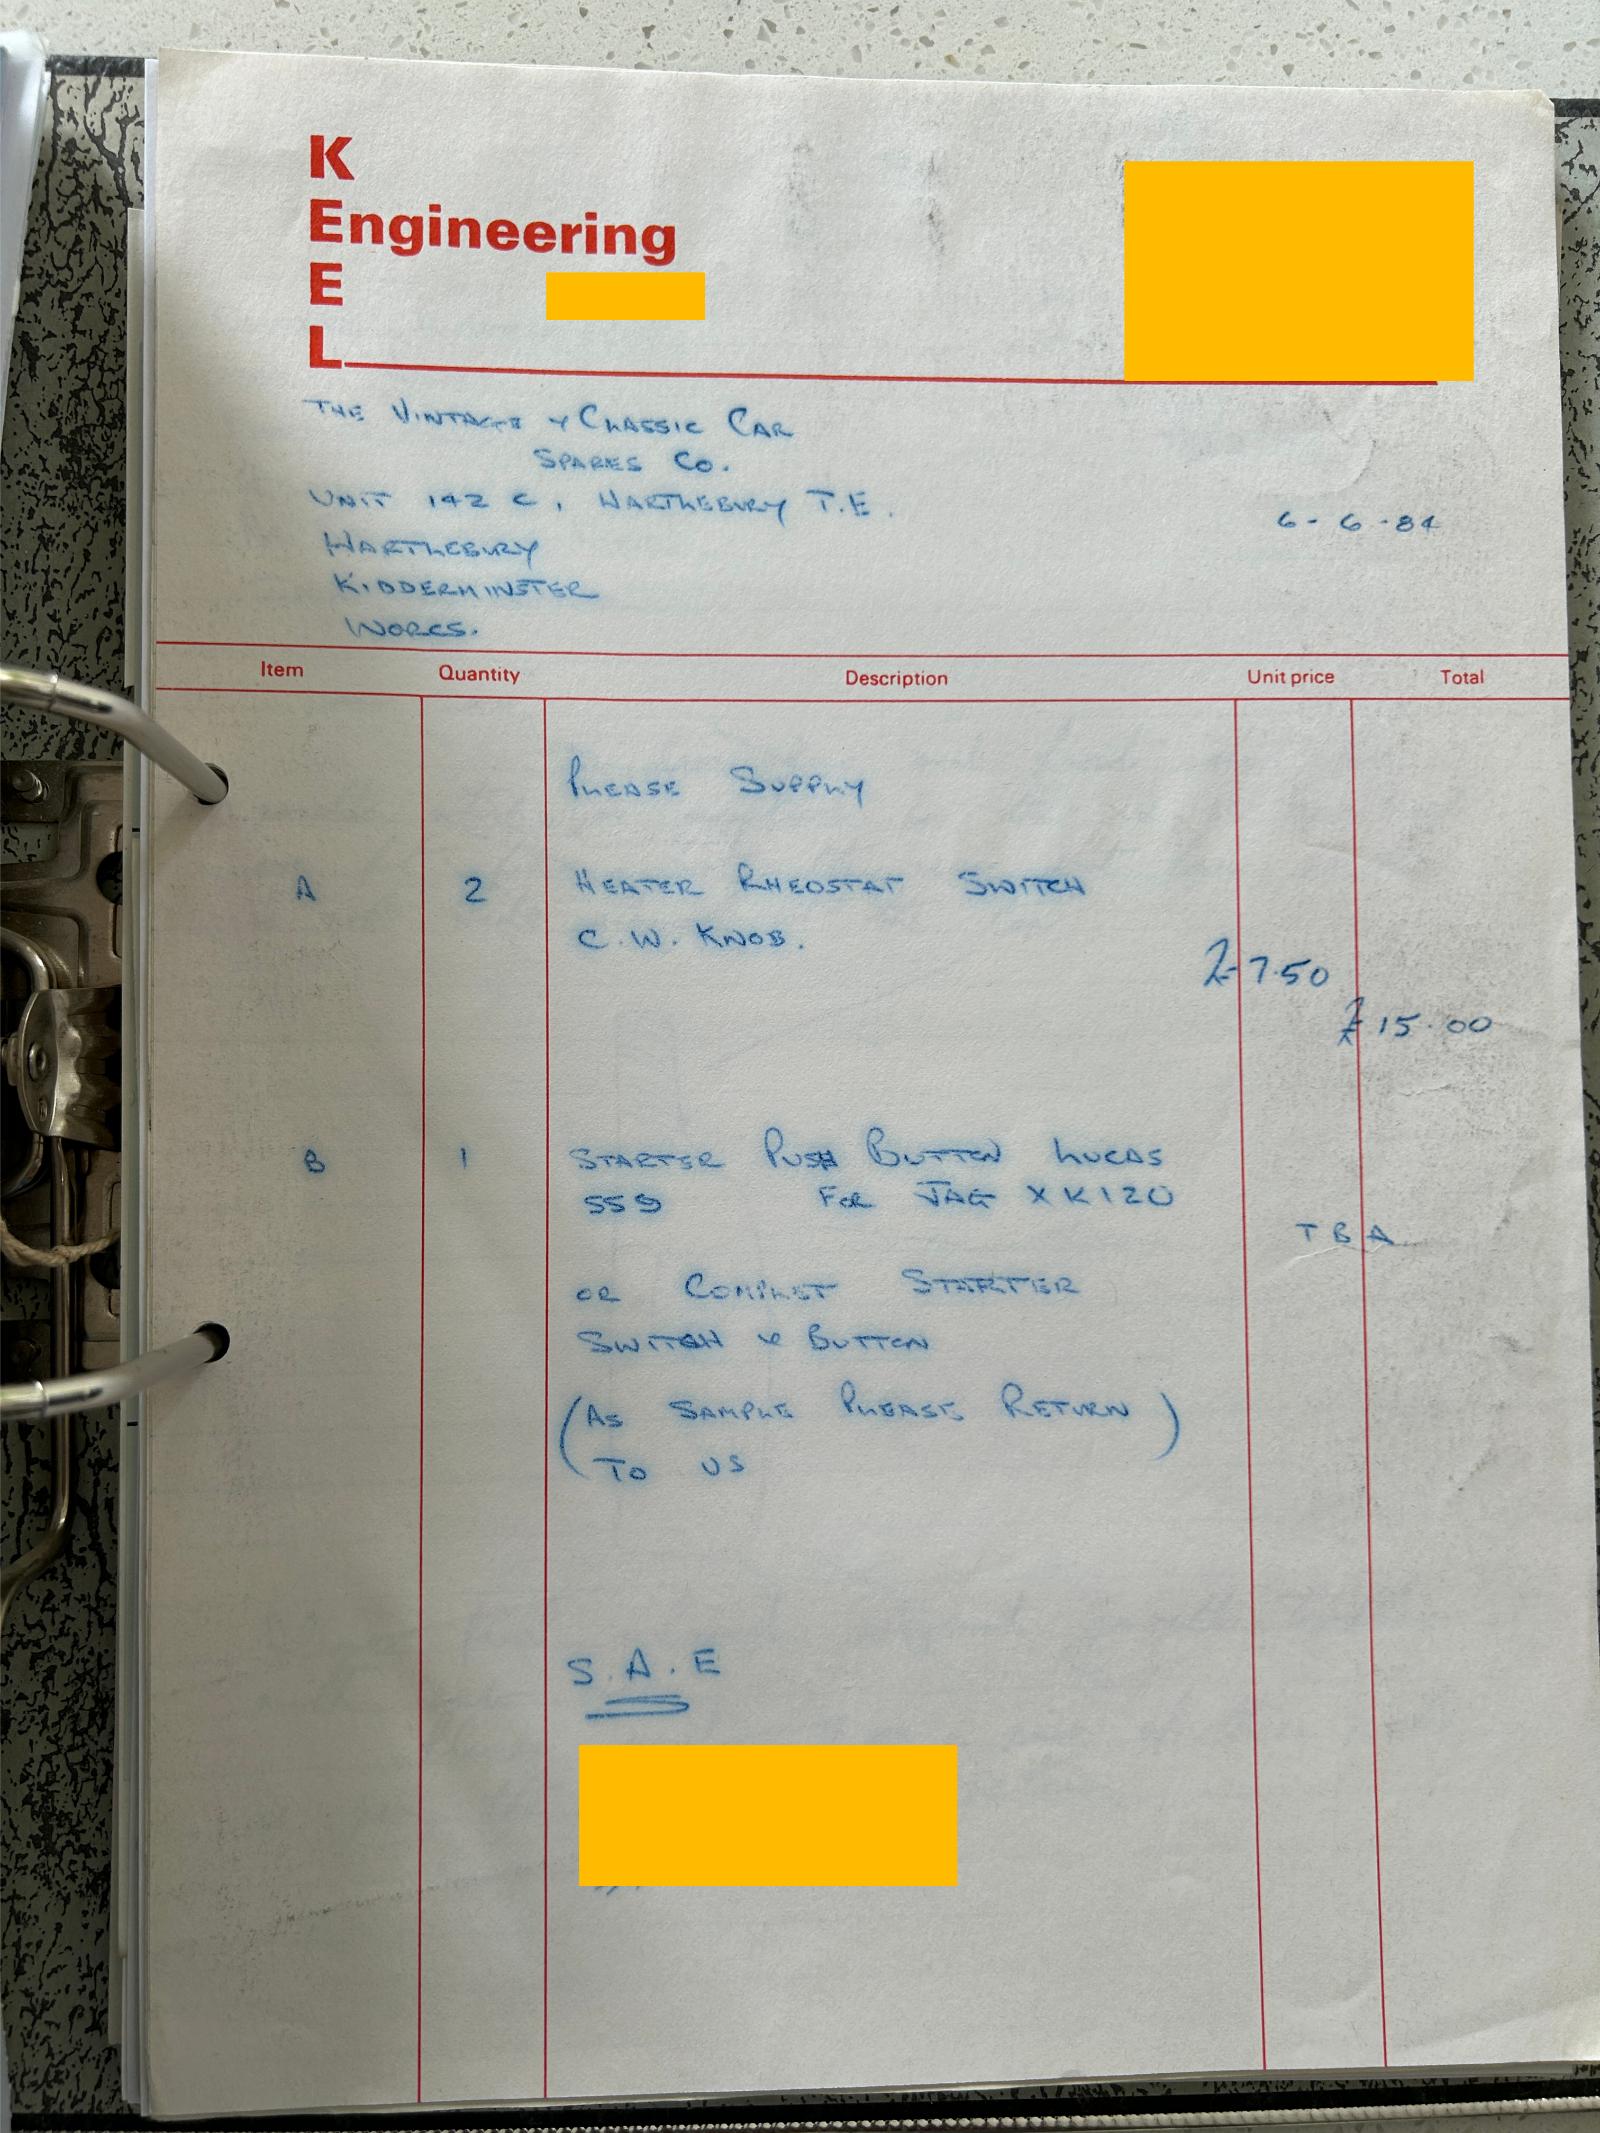 K
Engineering
E
L
THE VINTAGE & CLASSIC CAR
SPARES CO.
UNIT 142 C, HARTLEBURY T.E.
6-6-84
HARTLEBURY
KIDDERMINSTER
WORCS.
Item Quantity Description Unit price Total
PLEASE SUPPLY
A 2 HEATER RHEOSTAT SWITCH
C.W. KNOB.
£7.50
£15.00
B 1 STARTER PUSH BUTTON LUCAS
SS9 FOR JAG XK120
TBA
OR COMPLET STARTER
SWITCH & BUTTON
(AS SAMPLE PLEASE RETURN)
TO US
S.A.E